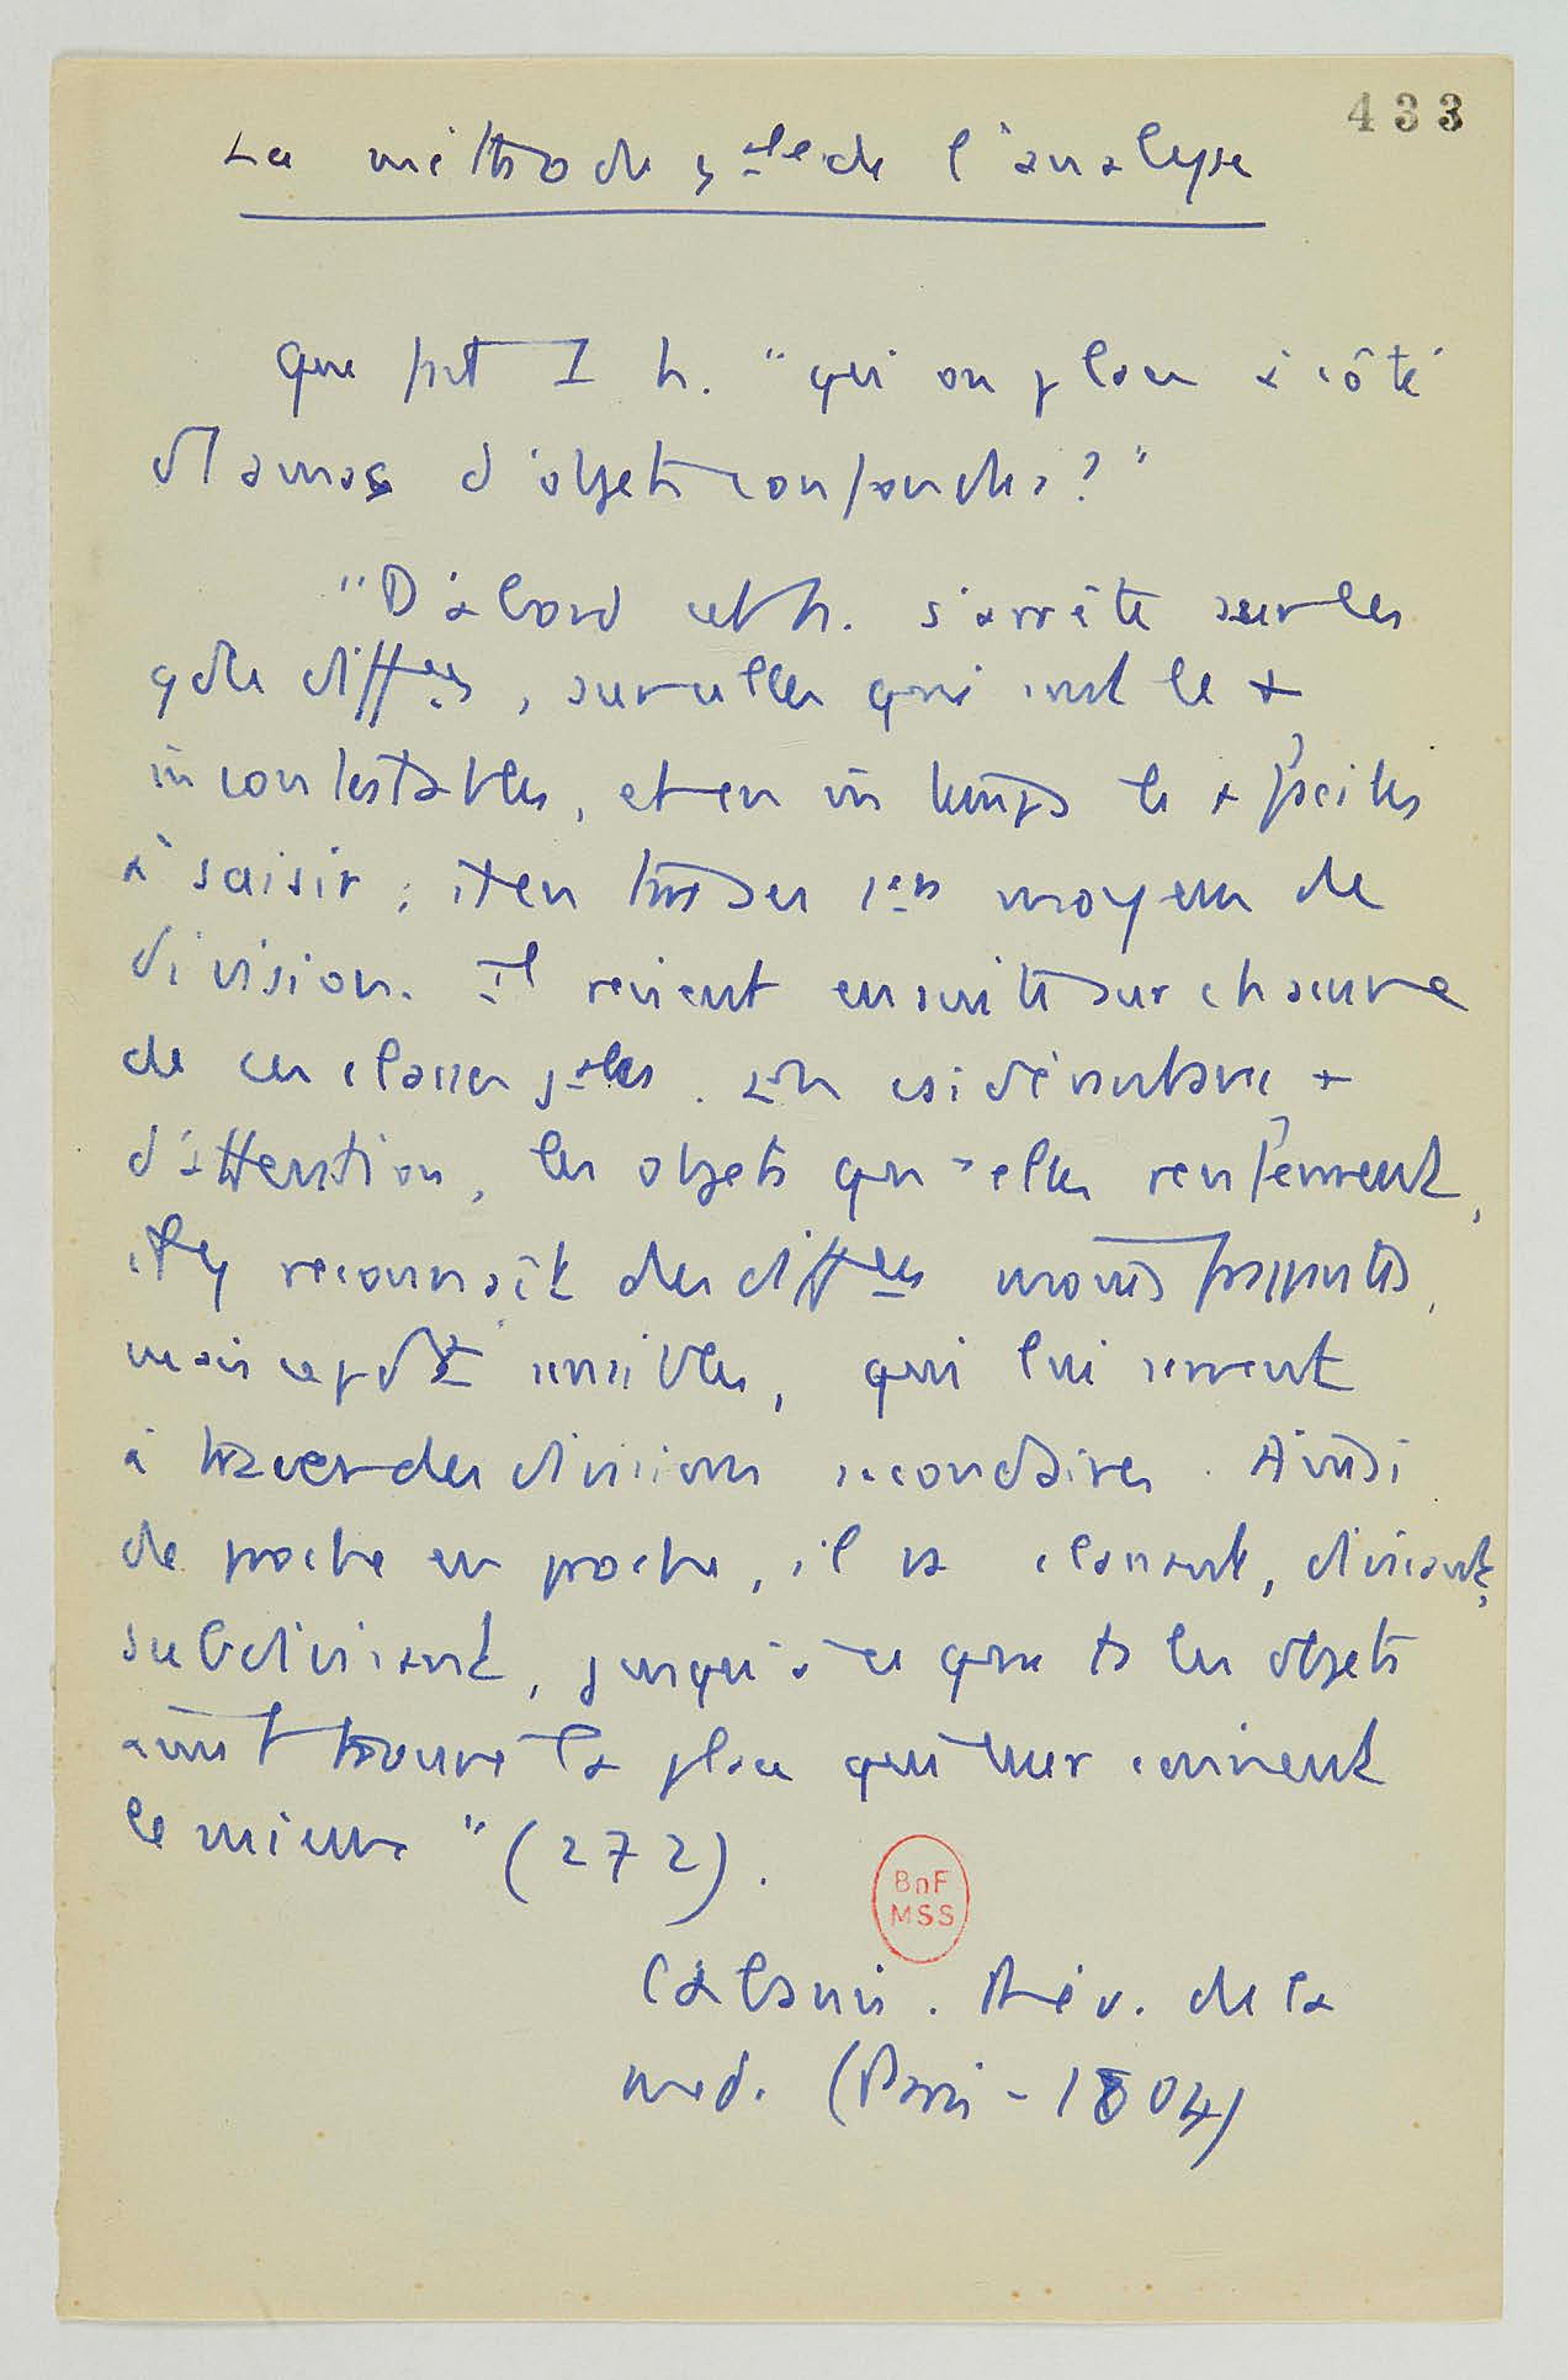 433
La méthode gale de l'analyse
Que fait 1 h. "qu'on place à côté
d'amas d'objets confondus ?"
"D'abord cet h. s'arrête sur les
gdes diffces, sur celles qui sont le +
incontestables, et en m̂ temps le + faciles
à saisir ; il en tire ses 1ers moyens de
division. Il revient ensuite sur chacune
de ces classes gales. Il en considérant avec +
d'attention, les objets qu'elles renferment,
il y reconnaît des diffces moins frappantes,
mais cepdt sensibles, qui lui servent
à tracer des divisions secondaires. Ainsi
de proche en proche, il va classant, divisant,
subdivisant, jusqu'à ce que ts les objets
aient trouvé la place qui leur convient
le mieux" (272).
BnF
MSS
Cabanis. Rév. de la
med. (Paris - 1804)